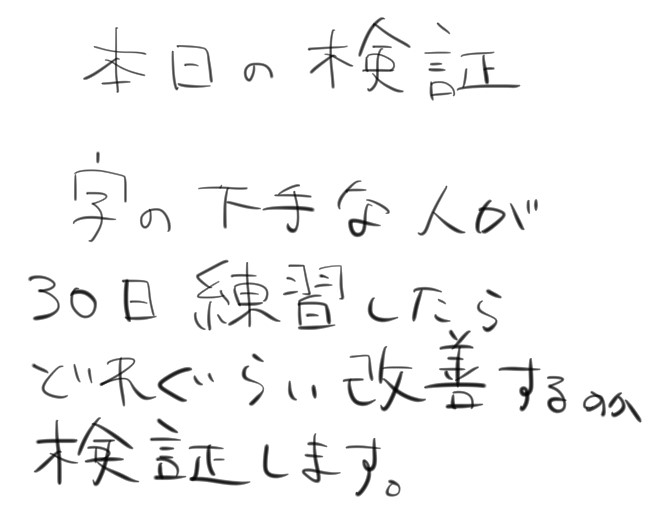 本日の検証
字の下手な人が
30日練習したら
どれぐらい改善するのか
検証します。